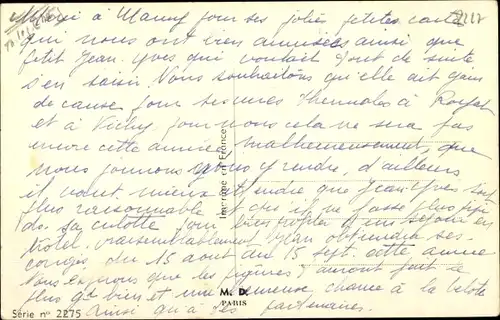 Merci à Mamy pour ses jolies petites cartes
qui nous ont bien amusées ainsi que
petit Jean-Yves qui voulait tout de suite
s'en saisir. Nous souhaitons qu'elle ait gain
de cause pour ses cures thermales à Royat
et à Vichy pour nous cela ne sera pas
encore cette année malheureusement, que
nous pourrons nous y rendre, d'ailleurs
il vaut mieux attendre que Jean-Yves soit
plus raisonnable et qu'il ne fasse plus pipi
ds sa culotte pour bien profiter d'un séjour en
hôtel. vraisemblablement Jean obtiendra ses
congés du 15 août au 15 sept. cette année
que les piqûres auront fait le
plus gd bien et une heureuse chance à la belote
ainsi qu'à ses partenaires.
Imprimé en France
M. D.
PARIS
Série n° 2275